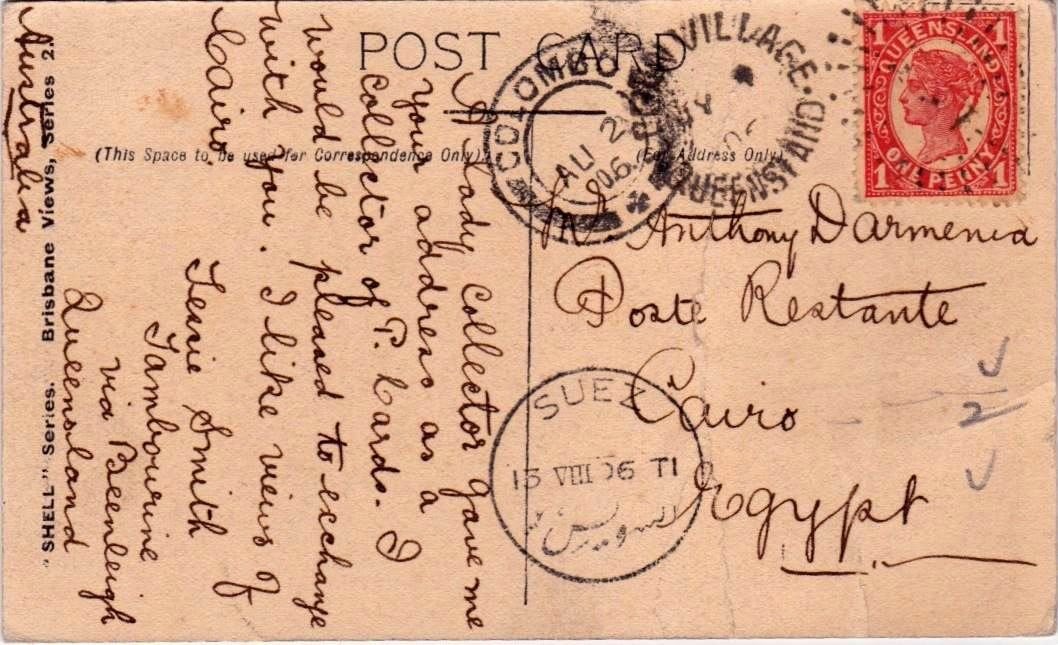 POST CARD
(This Space to be used for Correspondence Only).
(For Address Only)
A Lady collector gave me
your address as a
collector of P. Cards. I
would be pleased to exchange
with you. I like views of
Cairo
Tessie Smith
Tambourine
via Beenleigh
Queensland
Australia
"SHELL" Series. Brisbane Views, Series 2.
Mr Anthony Darmenia
Poste Restante
Cairo
Egypt
COLOMBO
AU 2
06
VILLAGE.
QUEENSLAND
QUEENSLAND
1 1
ONE PENNY
1 1
SUEZ
13 VIII 06 T1
السويس
2